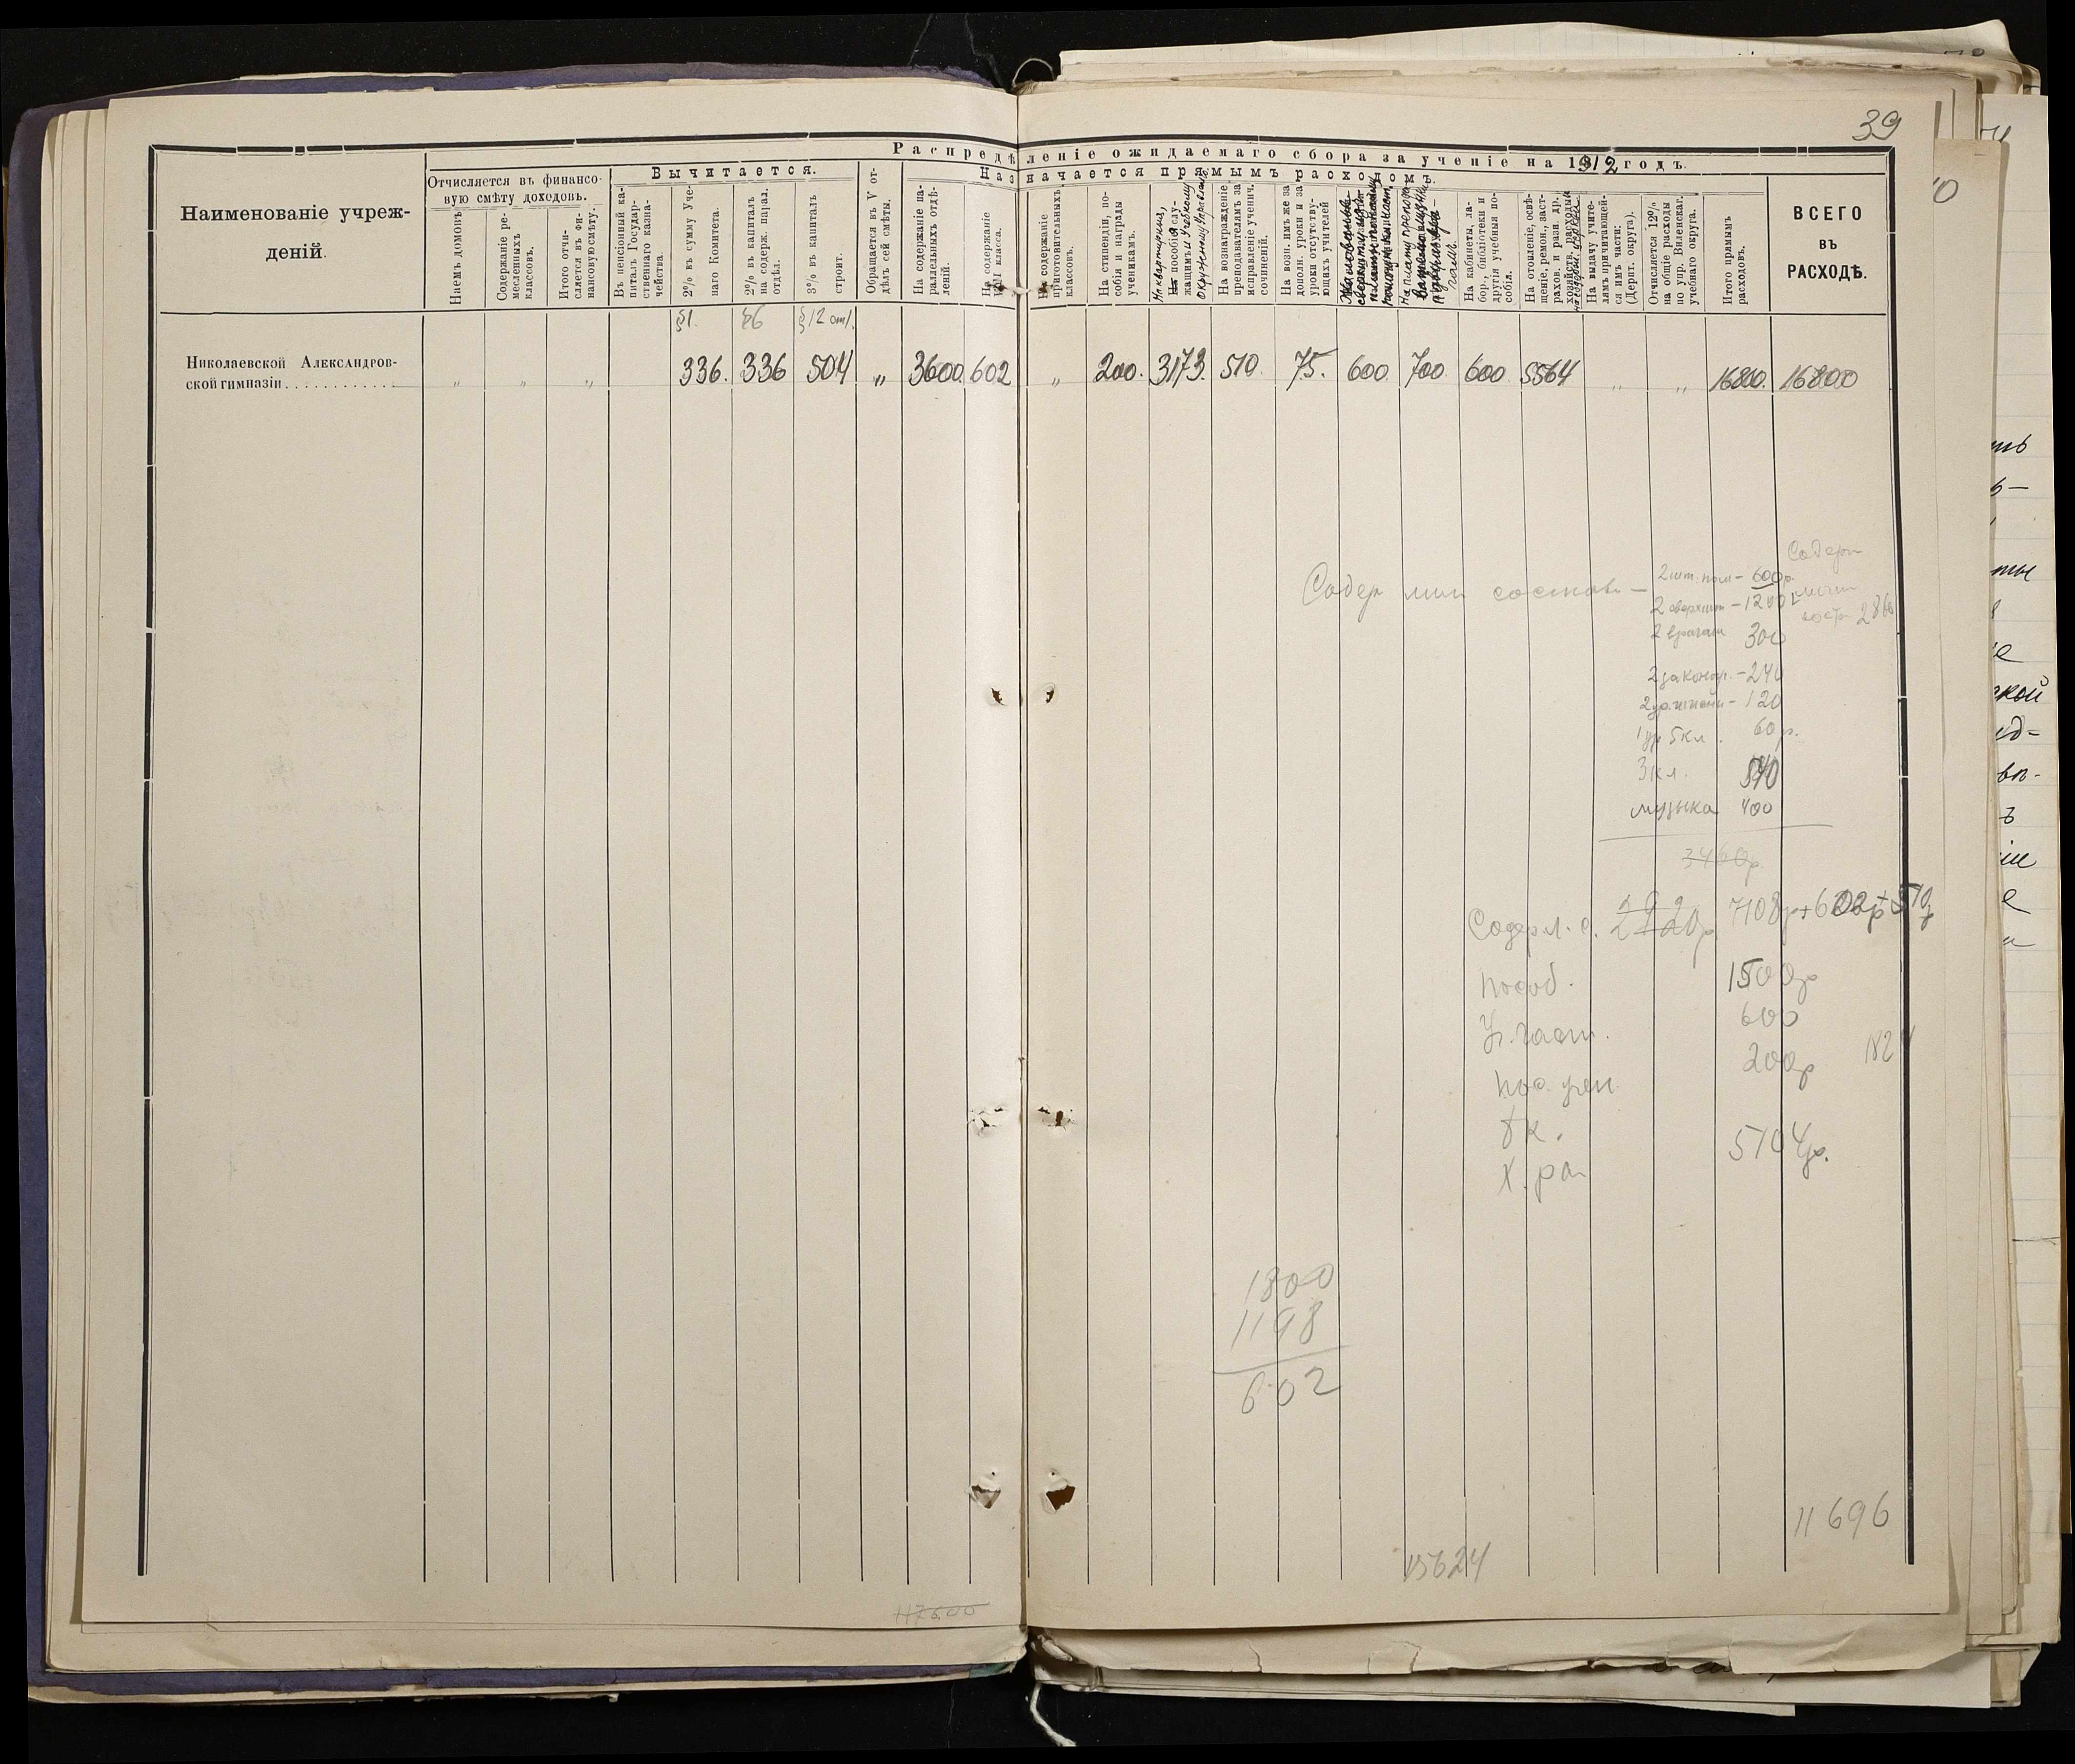 39
Распредѣленіе ожидаемаго сбора за ученіе на 1912 годъ.
Наименованіе учреж-
деній.
Отчисляется въ финансо-
вую смѣту доходовъ.
Наемъ домовъ
Содержаніе ре-
месленныхъ
классовъ.
Итого отчи-
сляется въ фи-
нансовую смѣту.
Вычитается.
Въ пенсіонный ка-
питалъ Государ-
ственнаго казна-
чейства.
2% въ сумму Уче-
наго Комитета.
2% въ капиталъ
на содерж. парал.
отдѣл.
3% въ капиталъ
строит.
Обращается въ V от-
дѣлъ сей смѣты.
Назначается прямымъ расходомъ.
На содержаніе па-
раллельныхъ отдѣ-
леній.
На содержаніе
класса.
На содержаніе
приготовительныхъ
классовъ.
На стипендіи, по-
собія и награды
ученикамъ.
На квартирныя,
пособія слу-
жащимъ и Учебному
окружному Управленію
На вознагражденіе
преподавателямъ за
исправленіе ученич.
сочиненій.
На возн. имъ же за
дополн. уроки и за
уроки отсутству-
ющихъ учителей
На кабинеты, ла-
бор., библіотеки и
другія учебныя по-
собія.
На отопленіе, освѣ-
щеніе, ремон., заст-
рахов. и разн. др.
хозяйств. расходы
На выдачу учите-
лямъ причитающей-
ся имъ части:
(Депт. округа).
Отчисляется 10%
на общіе расходы
по упр. Виленскаг.
учебнаго округа.
Итого прямымъ
расходовъ.
ВСЕГО
въ
РАСХОДѢ.
§1. §6 §12 от.
Николаевской Александров-
ской гимназіи . . . . . . . . . . . „ „ „ 336. 336 504 „ 3600 602 „ 200. 3173. 510. 75. 600 700 600 5564 „ „ 16800. 16800
Содер
Содер лич состав —
2 шт. пом — 600р.
2 сверхшт — 1200
2 врачам 300
2 законоуч. — 240
— 120
60 р.
3 кл. 540
музыка 400
3460р.
Содер л. с. 7108р + 602р + 510р
Пособ. 1500р
600
Пос. учен 200р
5104р.
1800
1198
602
11696
15624